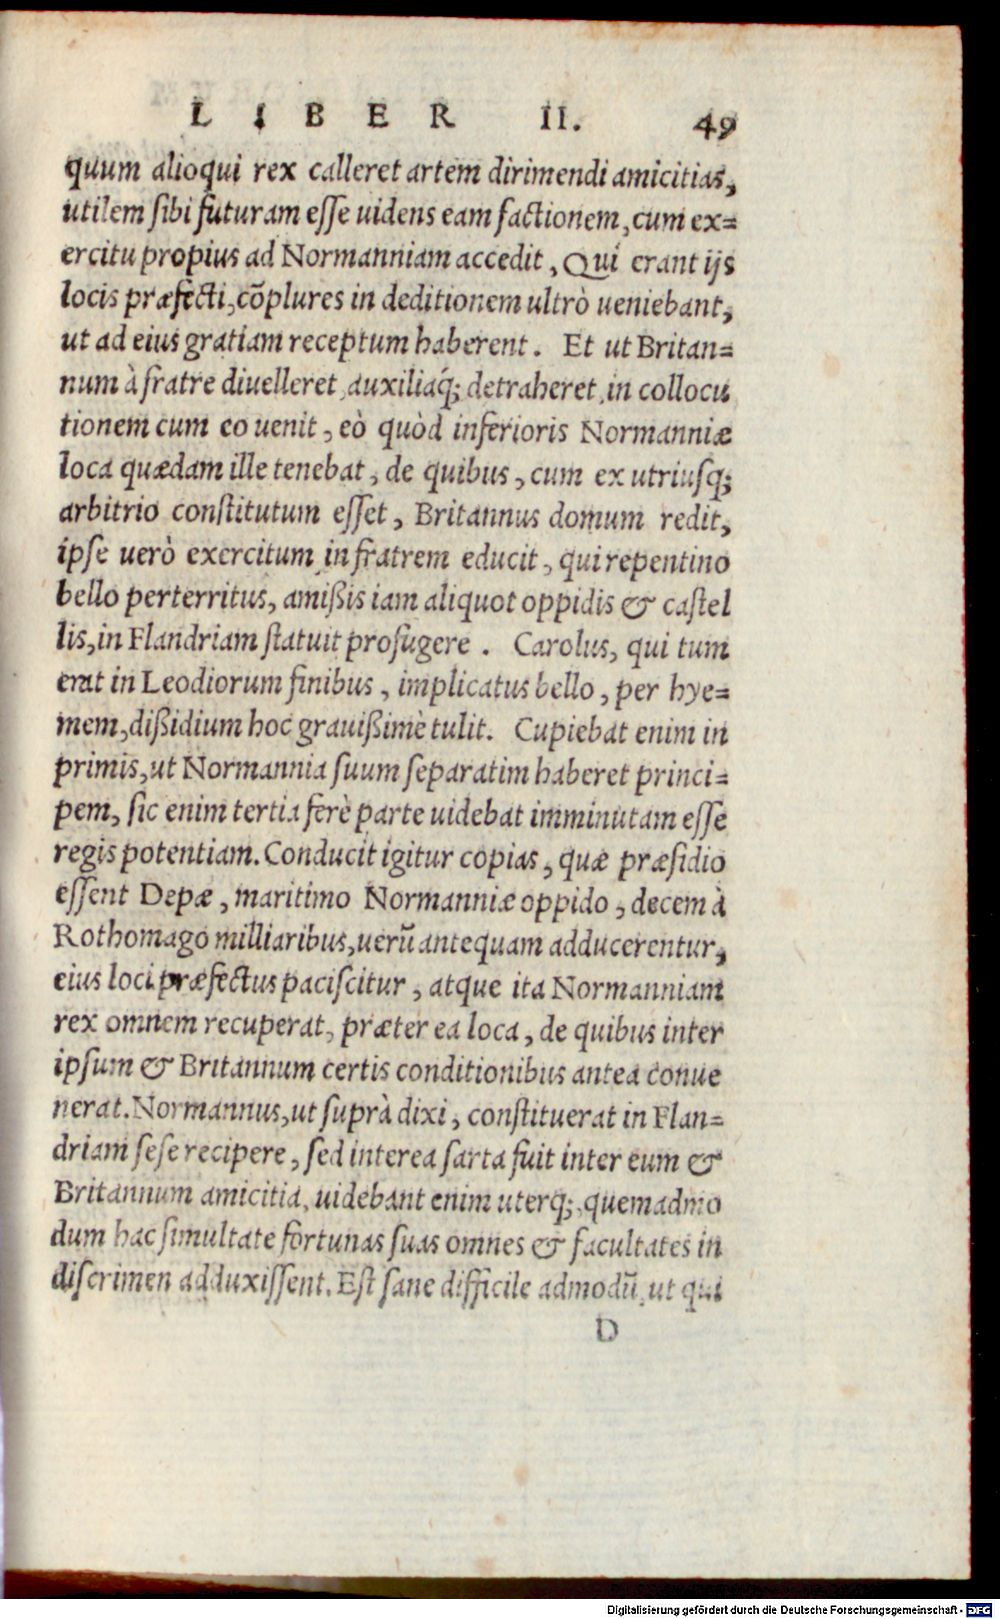 LIBER II. 49
quum alioqui rex calleret artem dirimendi amicitias,
utilem ſibi futuram eſſe uidens eam factionem, cum ex=
ercitu propius ad Normanniam accedit, Qui erant ijs
locis præfecti, cõplures in deditionem ultrò ueniebant,
ut ad eius gratiam receptum haberent. Et ut Britan=
num à fratre diuelleret, auxiliaq́; detraheret, in collocu
tionem cum eo uenit, eò quòd inferioris Normanniæ
loca quædam ille tenebat, de quibus, cum ex utriuſq;
arbitrio conſtitutum eſſet, Britannus domum redit,
ipſe uerò exercitum in fratrem educit, qui repentino
bello perterritus, amißis iam aliquot oppidis & caſtel
lis, in Flandriam ſtatuit profugere. Carolus, qui tum
erat in Leodiorum finibus, implicatus bello, per hye=
mem, dißidium hoc grauißimè tulit. Cupiebat enim in
primis, ut Normannia ſuum ſeparatim haberet princi=
pem, ſic enim tertia ferè parte uidebat imminutam eſſe
regis potentiam. Conducit igitur copias, quæ præſidio
eſſent Depæ, maritimo Normanniæ oppido, decem à
Rothomago milliaribus, uerũ antequam adducerentur,
eius loci præfectus paciſcitur, atque ita Normanniam
rex omnem recuperat, præter ea loca, de quibus inter
ipſum & Britannum certis conditionibus antea conue
nerat. Normannus, ut ſuprà dixi, conſtituerat in Flan=
driam ſeſe recipere, ſed interea ſarta fuit inter eum &
Britannum amicitia, uidebant enim uterq;, quemadmo
dum hac ſimultate fortunas ſuas omnes & facultates in
diſcrimen adduxiſſent. Eſt ſane difficile admodũ, ut qui
D
Digitalisierung gefördert durch die Deutsche Forschungsgemeinschaft - DFG